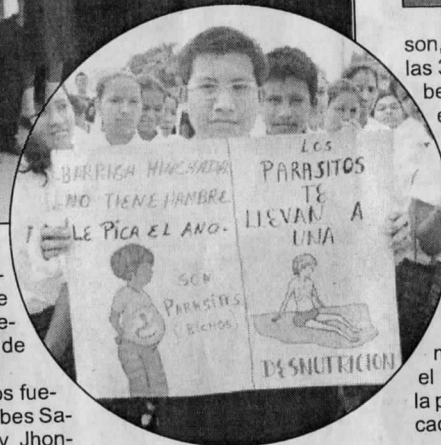 BARRIGA HINCHADA
NO TIENE HAMBRE
LE PICA EL ANO.
SON
PARASITES
(BICHOS)
LOS
PARASITOS
TE
LLEVAN A
UNA
DESNUTRICION
son,
las 3
be
e
e
e-
de
os fue-
bes Sa-
y Jhon-
m
el
la p
cac